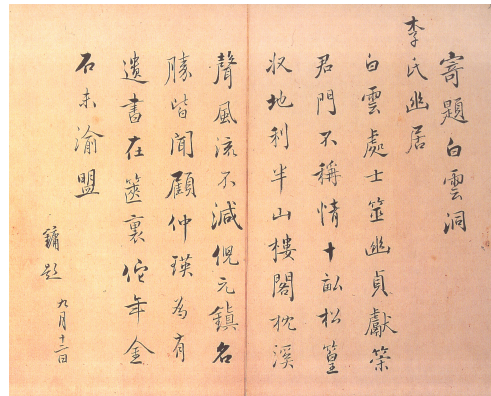 寄題白雲洞
李氏幽居
白雲處士筮幽貞獻策
君門不稱情十畝松篁
收地利半山樓閣枕溪
聲風流不減倪元鎮名
勝皆聞顧仲瑛為有
遺書在篋裏佗年金
石未渝盟
鏞題
九月十二日